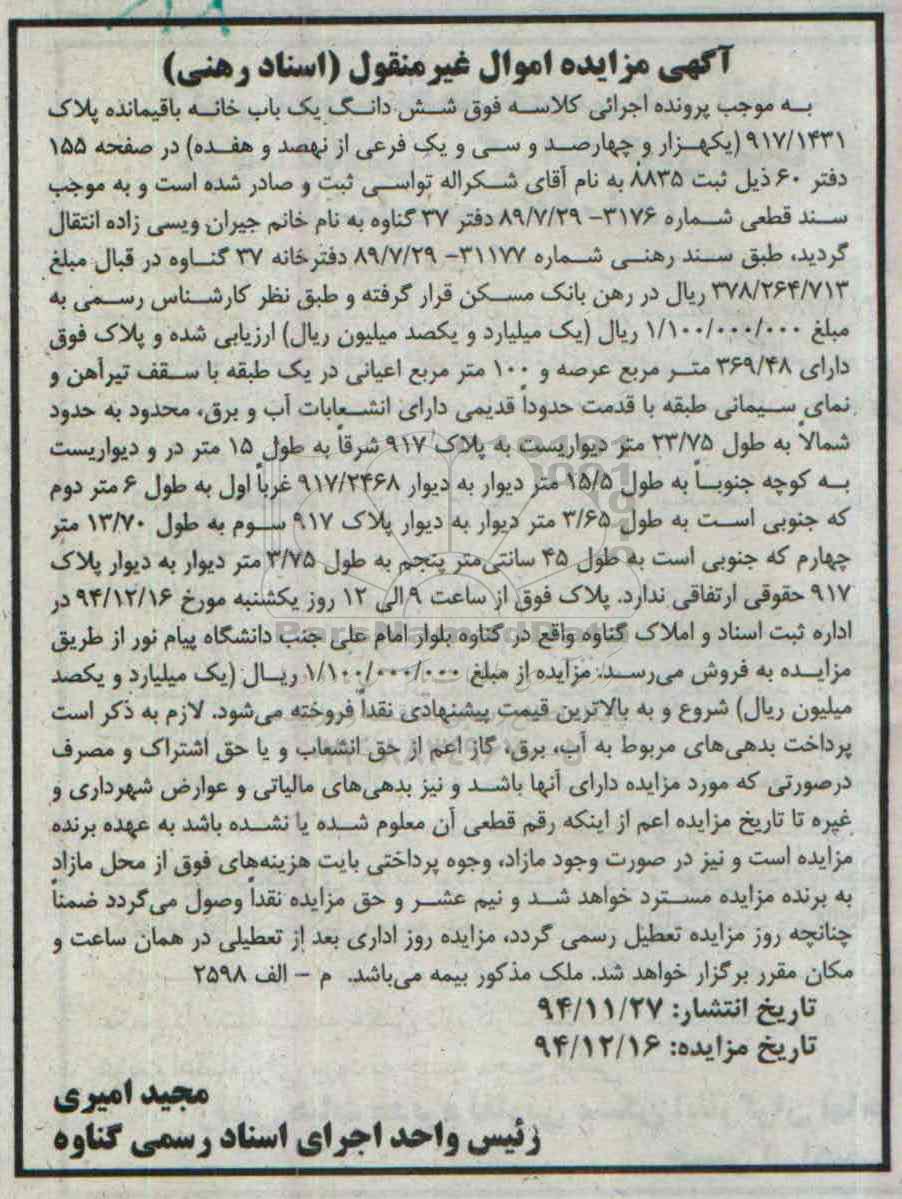 آگهی مزایده اموال غیرمنقول (اسناد رهنی)
به موجب پرونده اجرائی کلاسه فوق شش دانگ یک باب خانه باقیمانده پلاک
۹۱۷/۱۴۳۱ (یکهزار و چهارصد و سی و یک فرعی از نهصد و هفده) در صفحه ۱۵۵
دفتر ۶۰ ذیل ثبت ۸۸۳۵ به نام آقای شکراله تواسی ثبت و صادر شده است و به موجب
سند قطعی شماره ۳۱۷۶– ۸۹/۷/۲۹ دفتر ۳۷ گناوه به نام خانم جیران ویسی زاده انتقال
گردید، طبق سند رهنی شماره ۳۱۱۷۷– ۸۹/۷/۲۹ دفترخانه ۳۷ گناوه در قبال مبلغ
۳۷۸/۲۶۴/۷۱۳ ریال در رهن بانک مسکن قرار گرفته و طبق نظر کارشناس رسمی به
مبلغ ۱/۱۰۰/۰۰۰/۰۰۰ ریال (یک میلیارد و یکصد میلیون ریال) ارزیابی شده و پلاک فوق
دارای ۳۶۹/۴۸ متر مربع عرصه و ۱۰۰ متر مربع اعیانی در یک طبقه با سقف تیرآهن و
نمای سیمانی طبقه با قدمت حدوداً قدیمی دارای انشعابات آب و برق، محدود به حدود
شمالاً به طول ۲۳/۷۵ متر دیواریست به پلاک ۹۱۷ شرقاً به طول ۱۵ متر در و دیواریست
به کوچه جنوباً به طول ۱۵/۵ متر دیوار به دیوار ۹۱۷/۲۴۶۸ غرباً اول به طول ۶ متر دوم
که جنوبی است به طول ۳/۶۵ متر دیوار به دیوار پلاک ۹۱۷ سوم به طول ۱۳/۷۰ متر
چهارم که جنوبی است به طول ۴۵ سانتی‌متر پنجم به طول ۳/۷۵ متر دیوار به دیوار پلاک
۹۱۷ حقوقی ارتفاقی ندارد. پلاک فوق از ساعت ۹ الی ۱۲ روز یکشنبه مورخ ۹۴/۱۲/۱۶ در
اداره ثبت اسناد و املاک گناوه واقع در گناوه بلوار امام علی جنب دانشگاه پیام نور از طریق
مزایده به فروش می‌رسد. مزایده از مبلغ ۱/۱۰۰/۰۰۰/۰۰۰ ریال (یک میلیارد و یکصد
میلیون ریال) شروع و به بالاترین قیمت پیشنهادی نقداً فروخته می‌شود. لازم به ذکر است
پرداخت بدهی‌های مربوط به آب، برق، گاز اعم از حق انشعاب و یا حق اشتراک و مصرف
درصورتی که مورد مزایده دارای آنها باشد و نیز بدهی‌های مالیاتی و عوارض شهرداری و
غیره تا تاریخ مزایده اعم از اینکه رقم قطعی آن معلوم شده یا نشده باشد به عهده برنده
مزایده است و نیز در صورت وجود مازاد، وجوه پرداختی بابت هزینه‌های فوق از محل مازاد
به برنده مزایده مسترد خواهد شد و نیم عشر و حق مزایده نقداً وصول می‌گردد ضمناً
چنانچه روز مزایده تعطیل رسمی گردد، مزایده روز اداری بعد از تعطیلی در همان ساعت و
مکان مقرر برگزار خواهد شد. ملک مذکور بیمه می‌باشد. م – الف ۲۵۹۸
تاریخ انتشار: ۹۴/۱۱/۲۷
تاریخ مزایده: ۹۴/۱۲/۱۶
مجید امیری
رئیس واحد اجرای اسناد رسمی گناوه